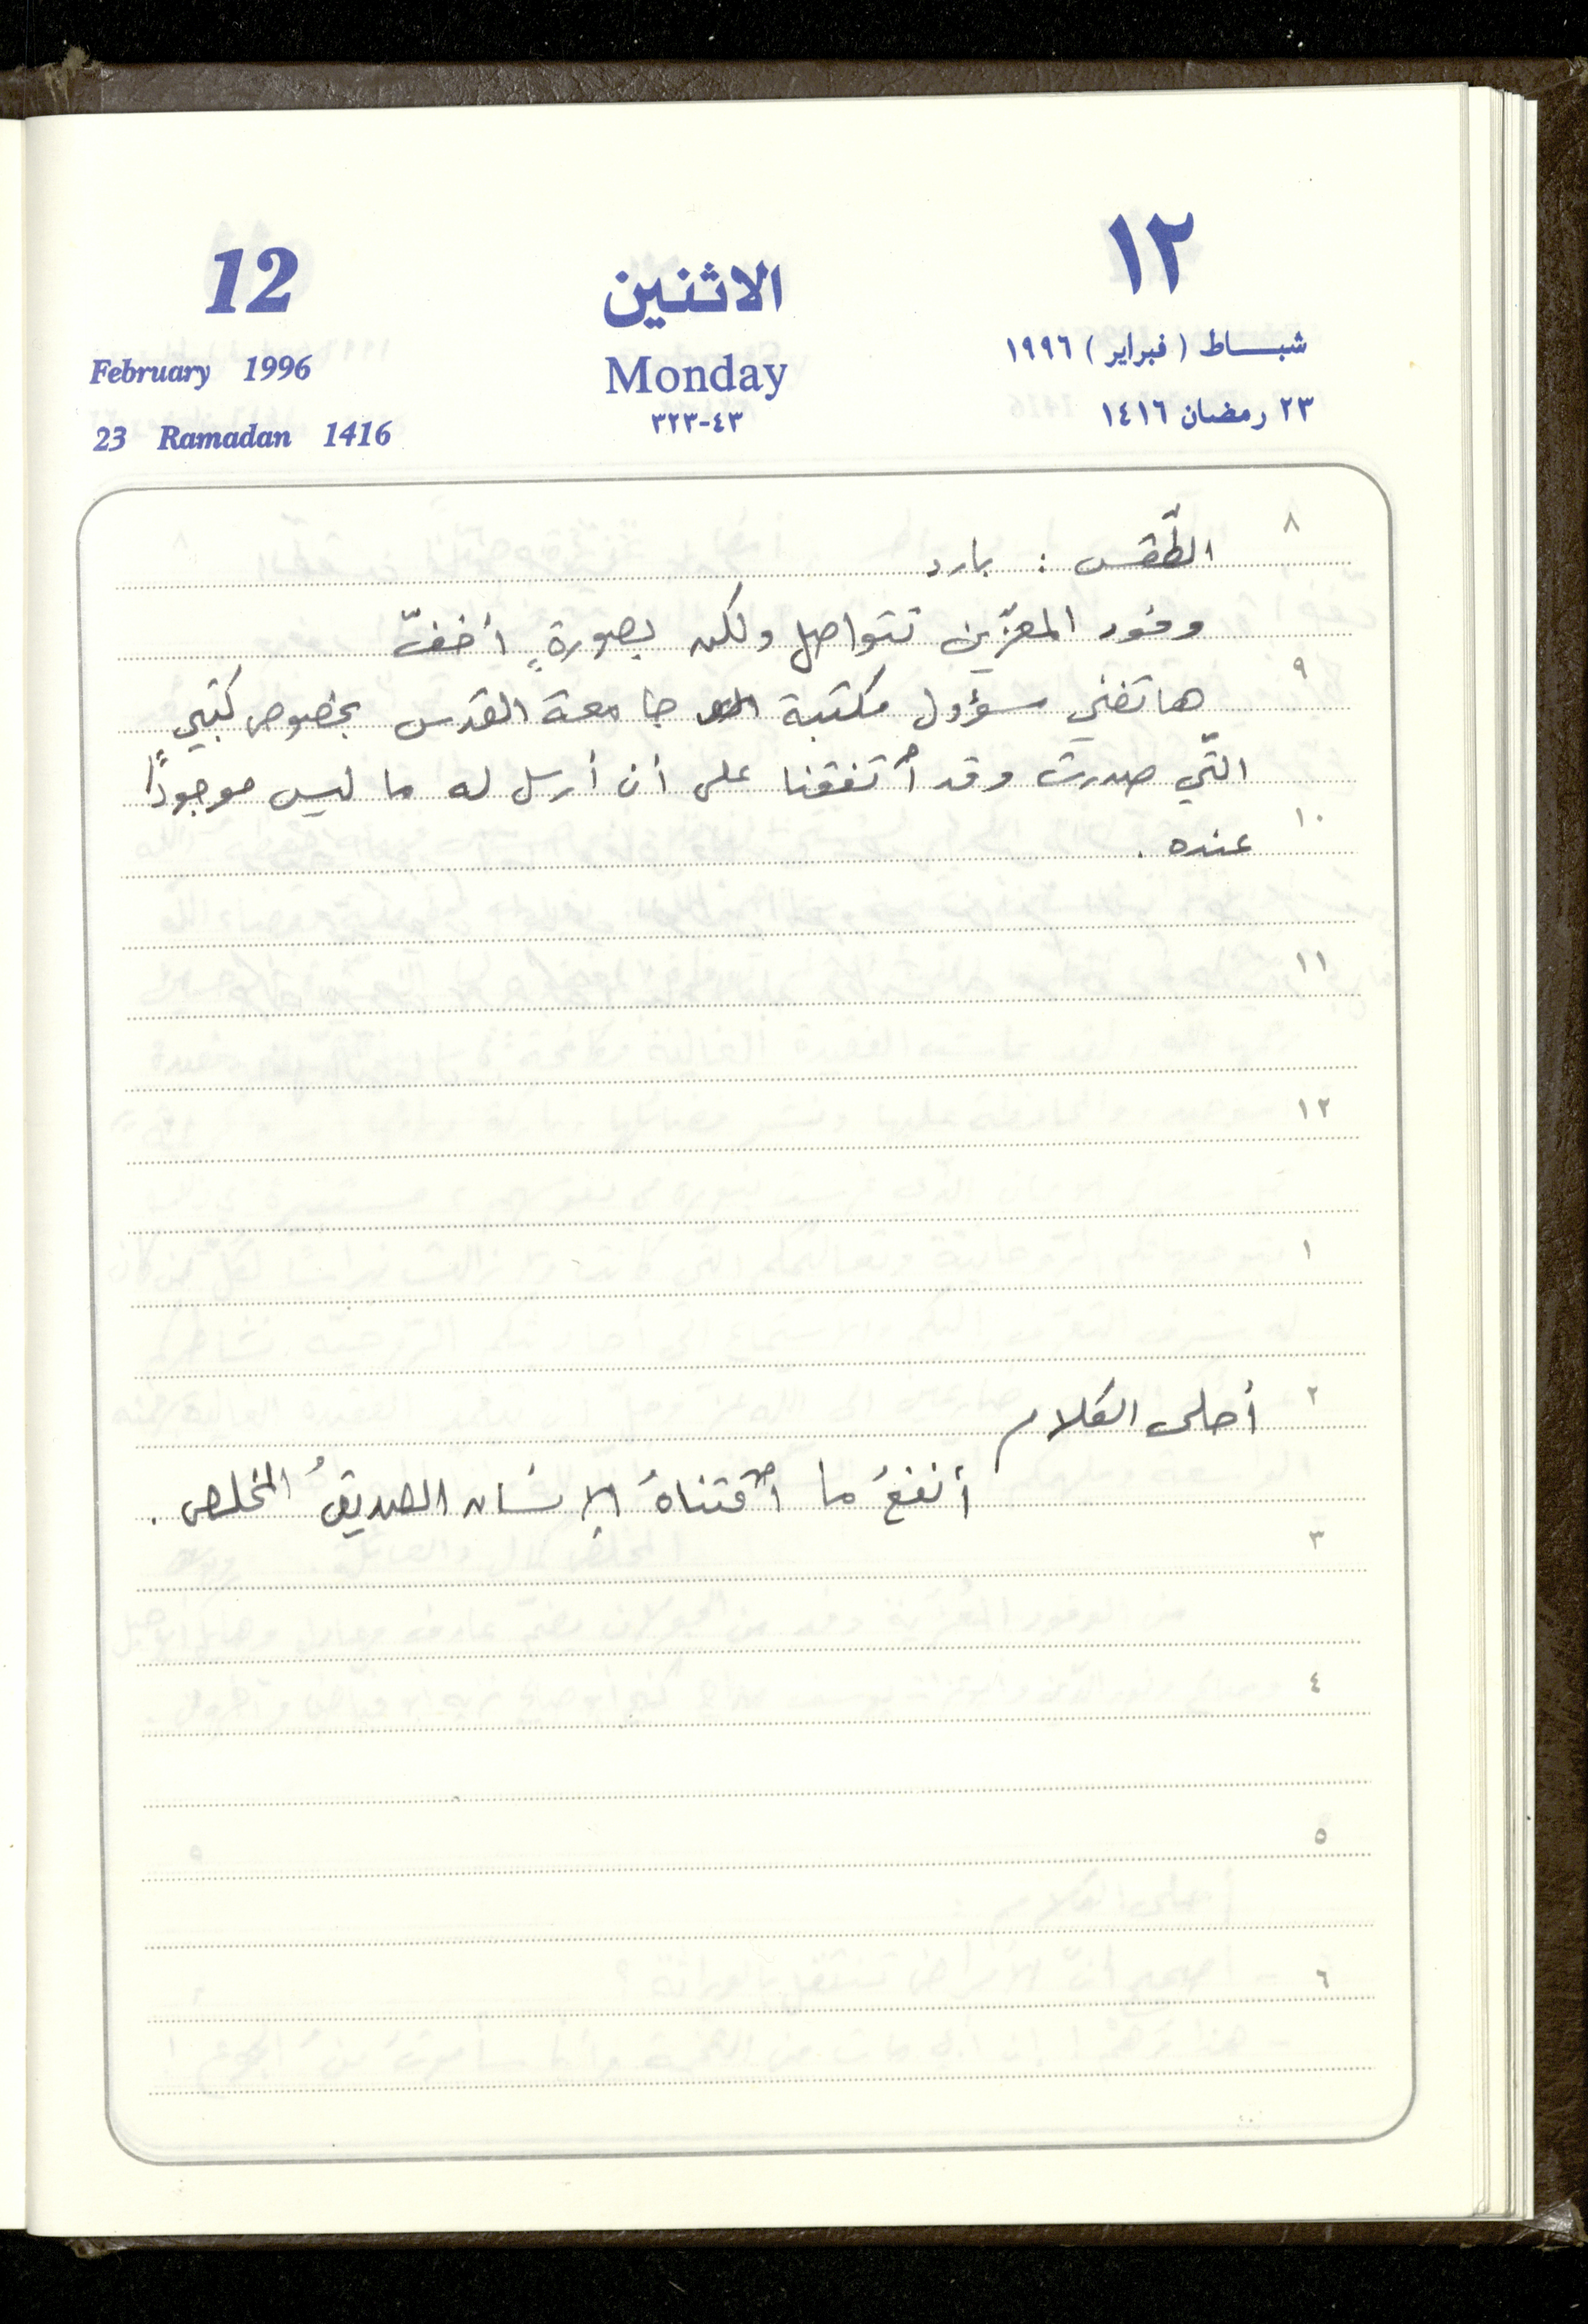 12
الاثنين
١٢
February 1996
Monday
شبــاط (فبراير) ١٩٩٦
23 Ramadan 1416
٤٣-٣٢٣
٢٣ رمضان ١٤١٦
٨
الطّقس : بارد
وفود المعزّين تتواصل ولكن بصورةٍ أخفّ
٩
هاتفني مسؤول مكتبة جامعة القدس بخصوص كتبي
التّي صدرت وقد ٱتفقنا على أن أرسل له ما ليس موجودًا
١٠
عنده .
١١
١٢
١
٢
أحلى الكلام
أنفعُ ما ٱقتناهُ الإنسان الصديقُ المخلص .
٣
٤
٥
٦